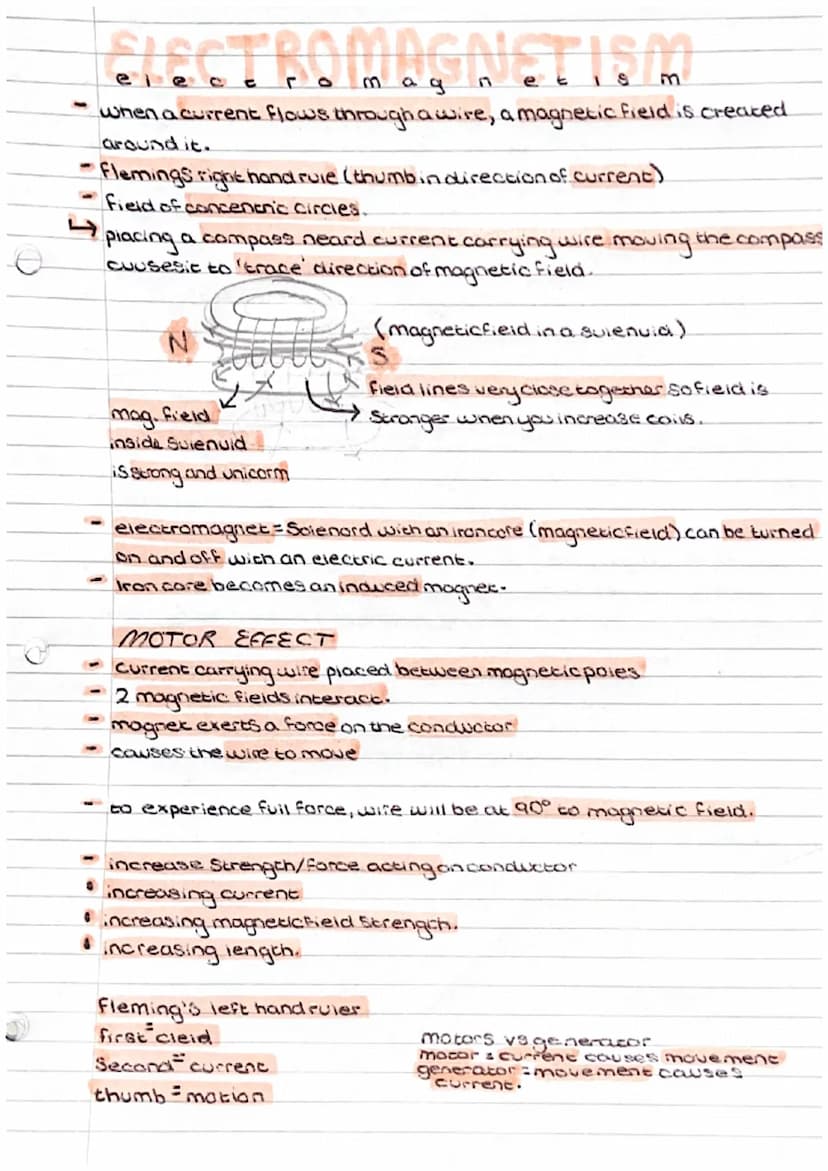 ELECTROMAGNETISM
electromagnetism
- when a current flows through a wire, a magnetic field is created
around it.
- Flemings right hand rule (thumb in direction of current)
- field of concentric circles.
↳ placing a compass neard current carrying wire moving the compass
cuusesit to 'trace' direction of magnetic field.
(magnetic field in a suienuid)
N
S
field lines very close together so field is
stronger when you increase coils.
mag. field
inside suienuid
is strong and unicorm
- electromagnet = Soienord with an iron core (magnetic field) can be turned
on and off with an electric current.
- Iron core becomes an induced magnet.
MOTOR EFFECT
- Current carrying wire placed between magnetic poles
- 2 magnetic fields interact.
- magnet exerts a force on the conductor
- causes the wire to move
- to experience full force, wire will be at 90° to magnetic field.
- increase strength/force acting on conductor
• increasing current
• increasing magnetic field strength.
• increasing length.
Fleming's left hand rules
first = cleid
Second = current
thumb = motion
motors vs generator
motor = current causes movement
generator = movement causes
current.